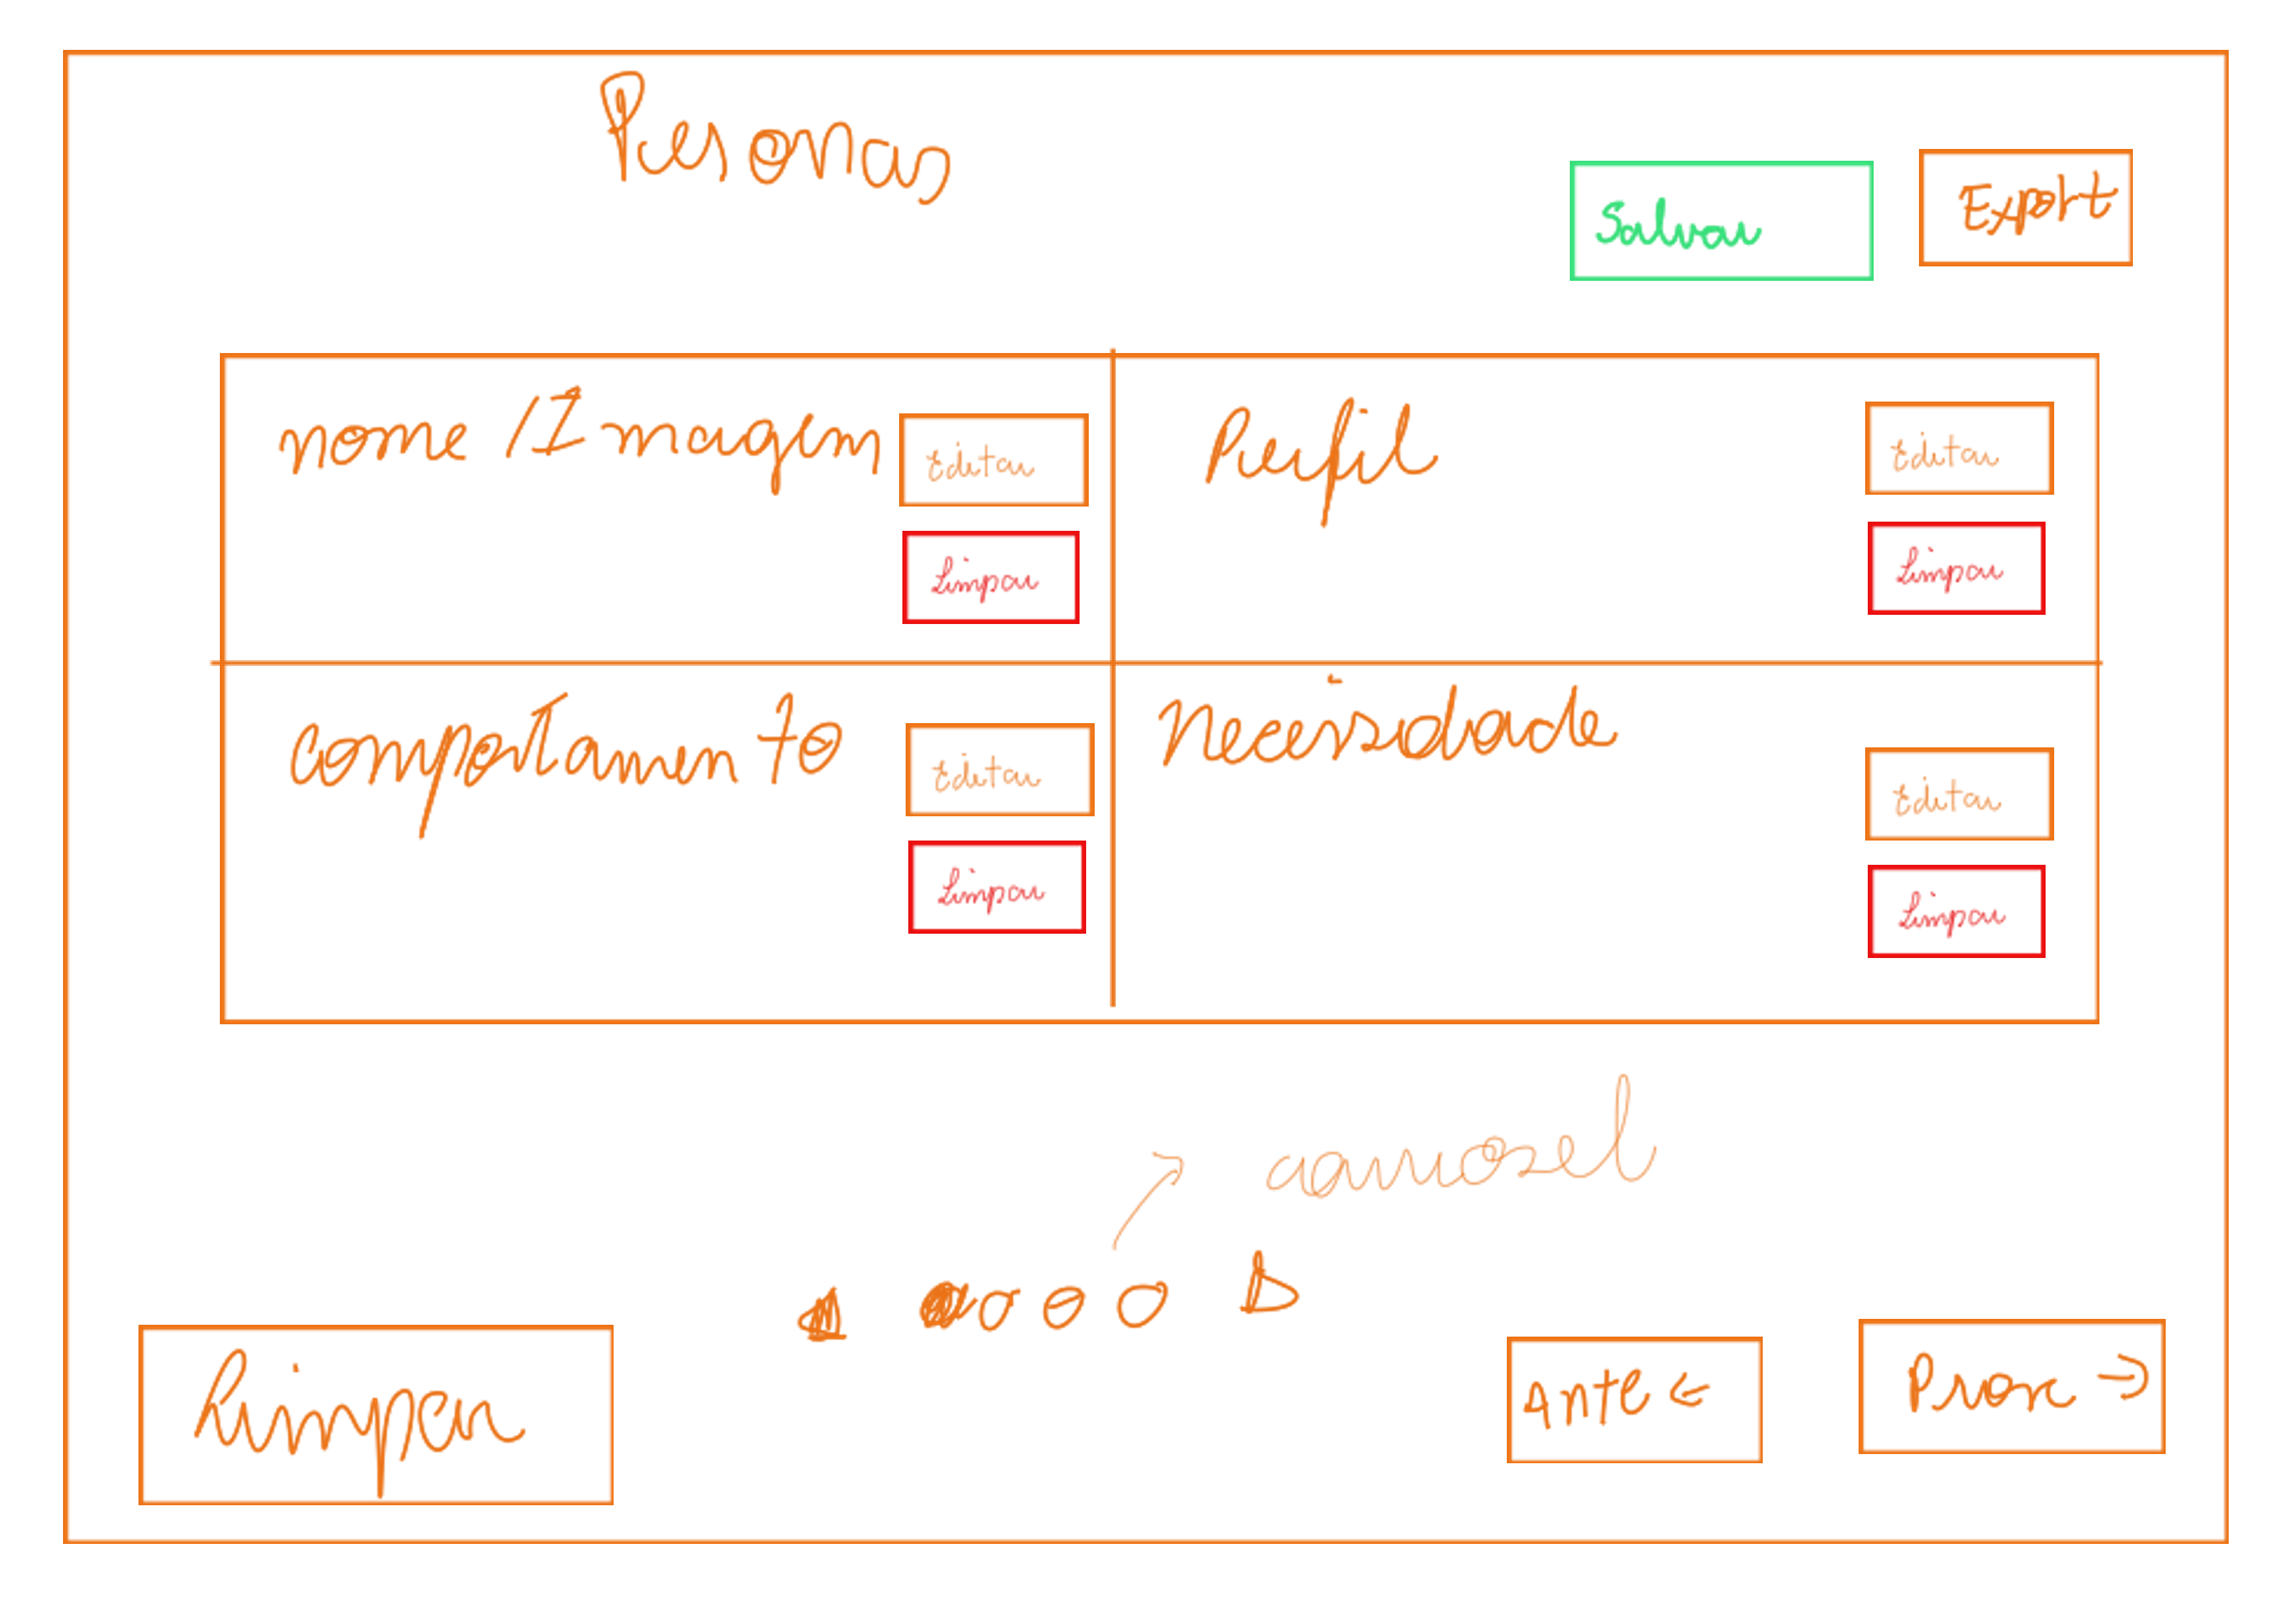 Personas
Salvar
Export
nome / Imagem
Editar
Limpar
Perfil
Editar
Limpar
comportamento
Editar
Limpar
Necessidade
Editar
Limpar
carrosel
Limpar
Ante ←
Prox →